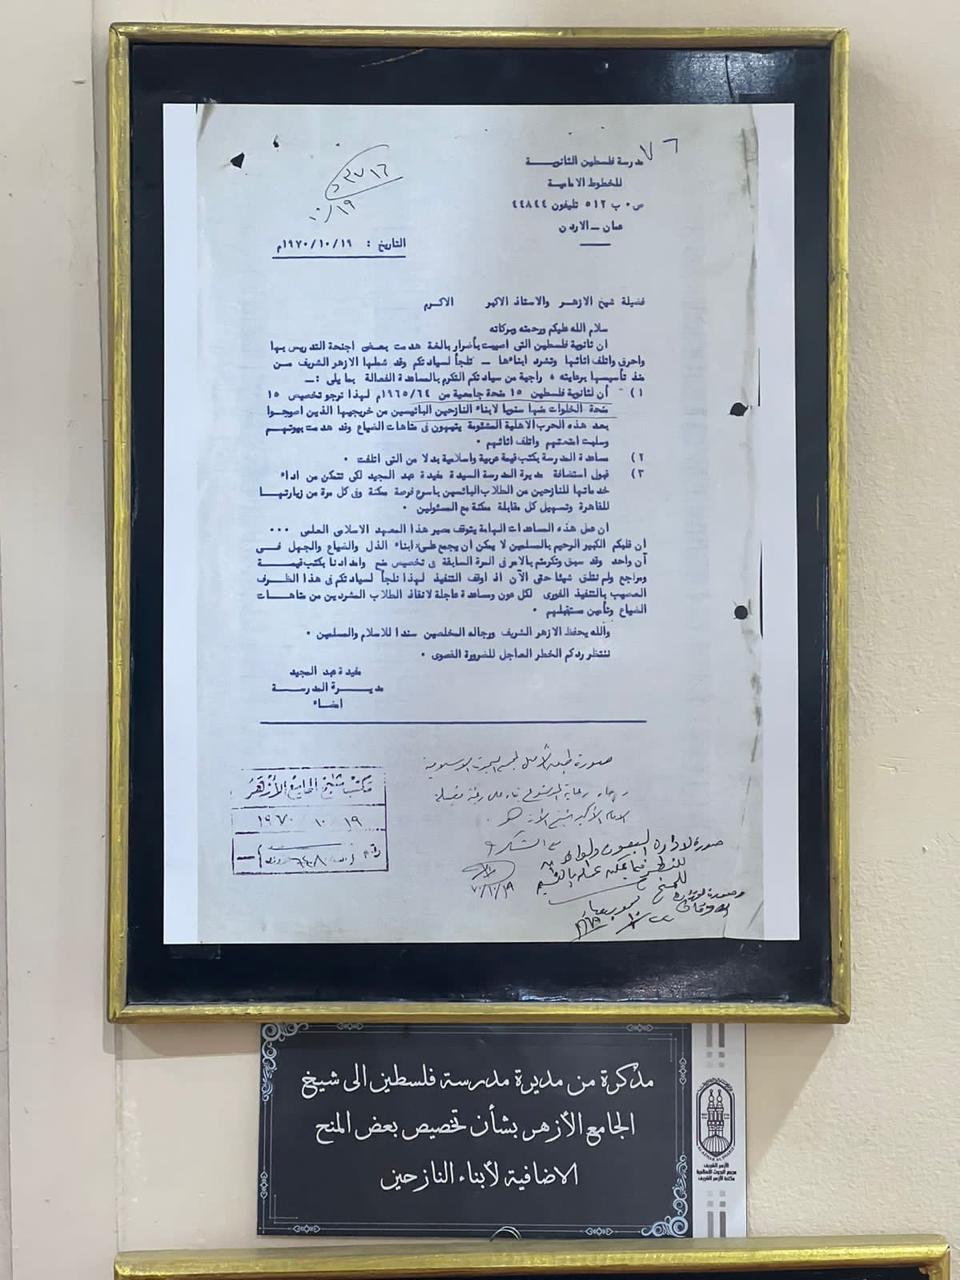 مدرسة فلسطين الثانوية
للخطوط الامامية
ص ٠ ب ٥١٢ تليفون ٤٤٨٤٤
عمان ــ الاردن
٧٦
١٠/١٩
التاريخ : ١٩٧٠/١٠/١٩م
فضيلة شيخ الازهر والاستاذ الاكبر الاكرم
سلام الله عليكم ورحمته وبركاته
ان ثانوية فلسطين التى اصيبت بأضرار بالغة هدمت بعض اجنحة التدريس بها
واحرق واتلف اثاثها وتشرد ابناءها ــ تلجأ لسيادتكم وقد شملها الازهر الشريف من
منذ تأسيسها برعايته ، راجية من سيادتكم التكرم بالمساعدة الفعالة بما يلى :ــ
١) أن لثانوية فلسطين ١٥ منحة جامعية من ٦٤/١٩٦٥م لهذا نرجو تخصيص ١٥
منحة الخلوات منها سنويا لابناء النازحين البائسين من خريجيها الذين اصبحوا
بعد هذه الحرب الاهلية المشئومة يتيهون فى متاهات الضياع وقد هدمت بيوتهم
وسلبت امتعتهم واتلف اثاثهم ٠
٢) مساعدة المدرسة بكتب قيمة عربية واسلامية بدلا من التى اتلفت ٠
٣) قبول استضافة مديرة المدرسة السيدة مفيدة عبد المجيد لكى تتمكن من اداء
خدماتها للنازحين من الطلاب البائسين باسرع فرصة ممكنة وفى كل مرة من زيارتها
للقاهرة وتسهيل كل مقابلة ممكنة مع المسئولين ٠
ان على هذه المساعدات الهامة يتوقف مصير هذا المعهد الاسلامى العلمى ٠٠٠
أن قلبكم الكبير الرحيم بالمسلمين لا يمكن أن يجمع على أبناء الذل والضياع والجهل فى
آن واحد وقد سبق وتكرمتم بالامر فى المرة السابقة فى تخصيص منح وامدادنا بكتب قيمة
ومراجع ولم نتلق شيئا حتى الآن اذ اوقف التنفيذ لهذا نلجأ لسيادتكم فى هذا الظرف
العصيب بالتنفيذ الفورى لكل عون ومساعدة عاجلة لانقاذ الطلاب المشردين من متاهات
الضياع وتأمين مستقبلهم ٠
والله يحفظ الازهر الشريف ورجاله المخلصين سندا للاسلام والمسلمين ٠
ننتظر ردكم الخطر العاجل للضرورة القصوى ٠
مفيدة عبد المجيد
مديرة المدرسة
امضاء
صورة طبق الأصل لمجمع البحوث الاسلامية
الامام الأكبر شيخ الأزهر
مع الشكر
٧٠/١٠/١٩
مكتب شيخ الجامع الأزهر
١٩ ١٠ ١٩٧٠
رقم
صورة لادارة البعوث
مذكرة من مديرة مدرسة فلسطين الى شيخ
الجامع الأزهر بشأن تخصيص بعض المنح
الاضافية لأبناء النازحين
الأزهر الشريف
مجمع البحوث الإسلامية
مكتبة الأزهر الشريف